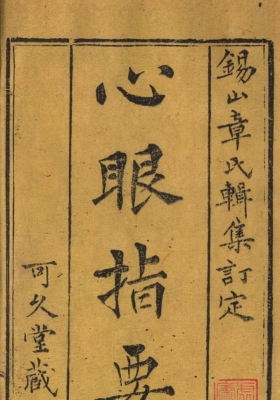 錫山章氏輯集訂定
心眼指要
可久堂藏